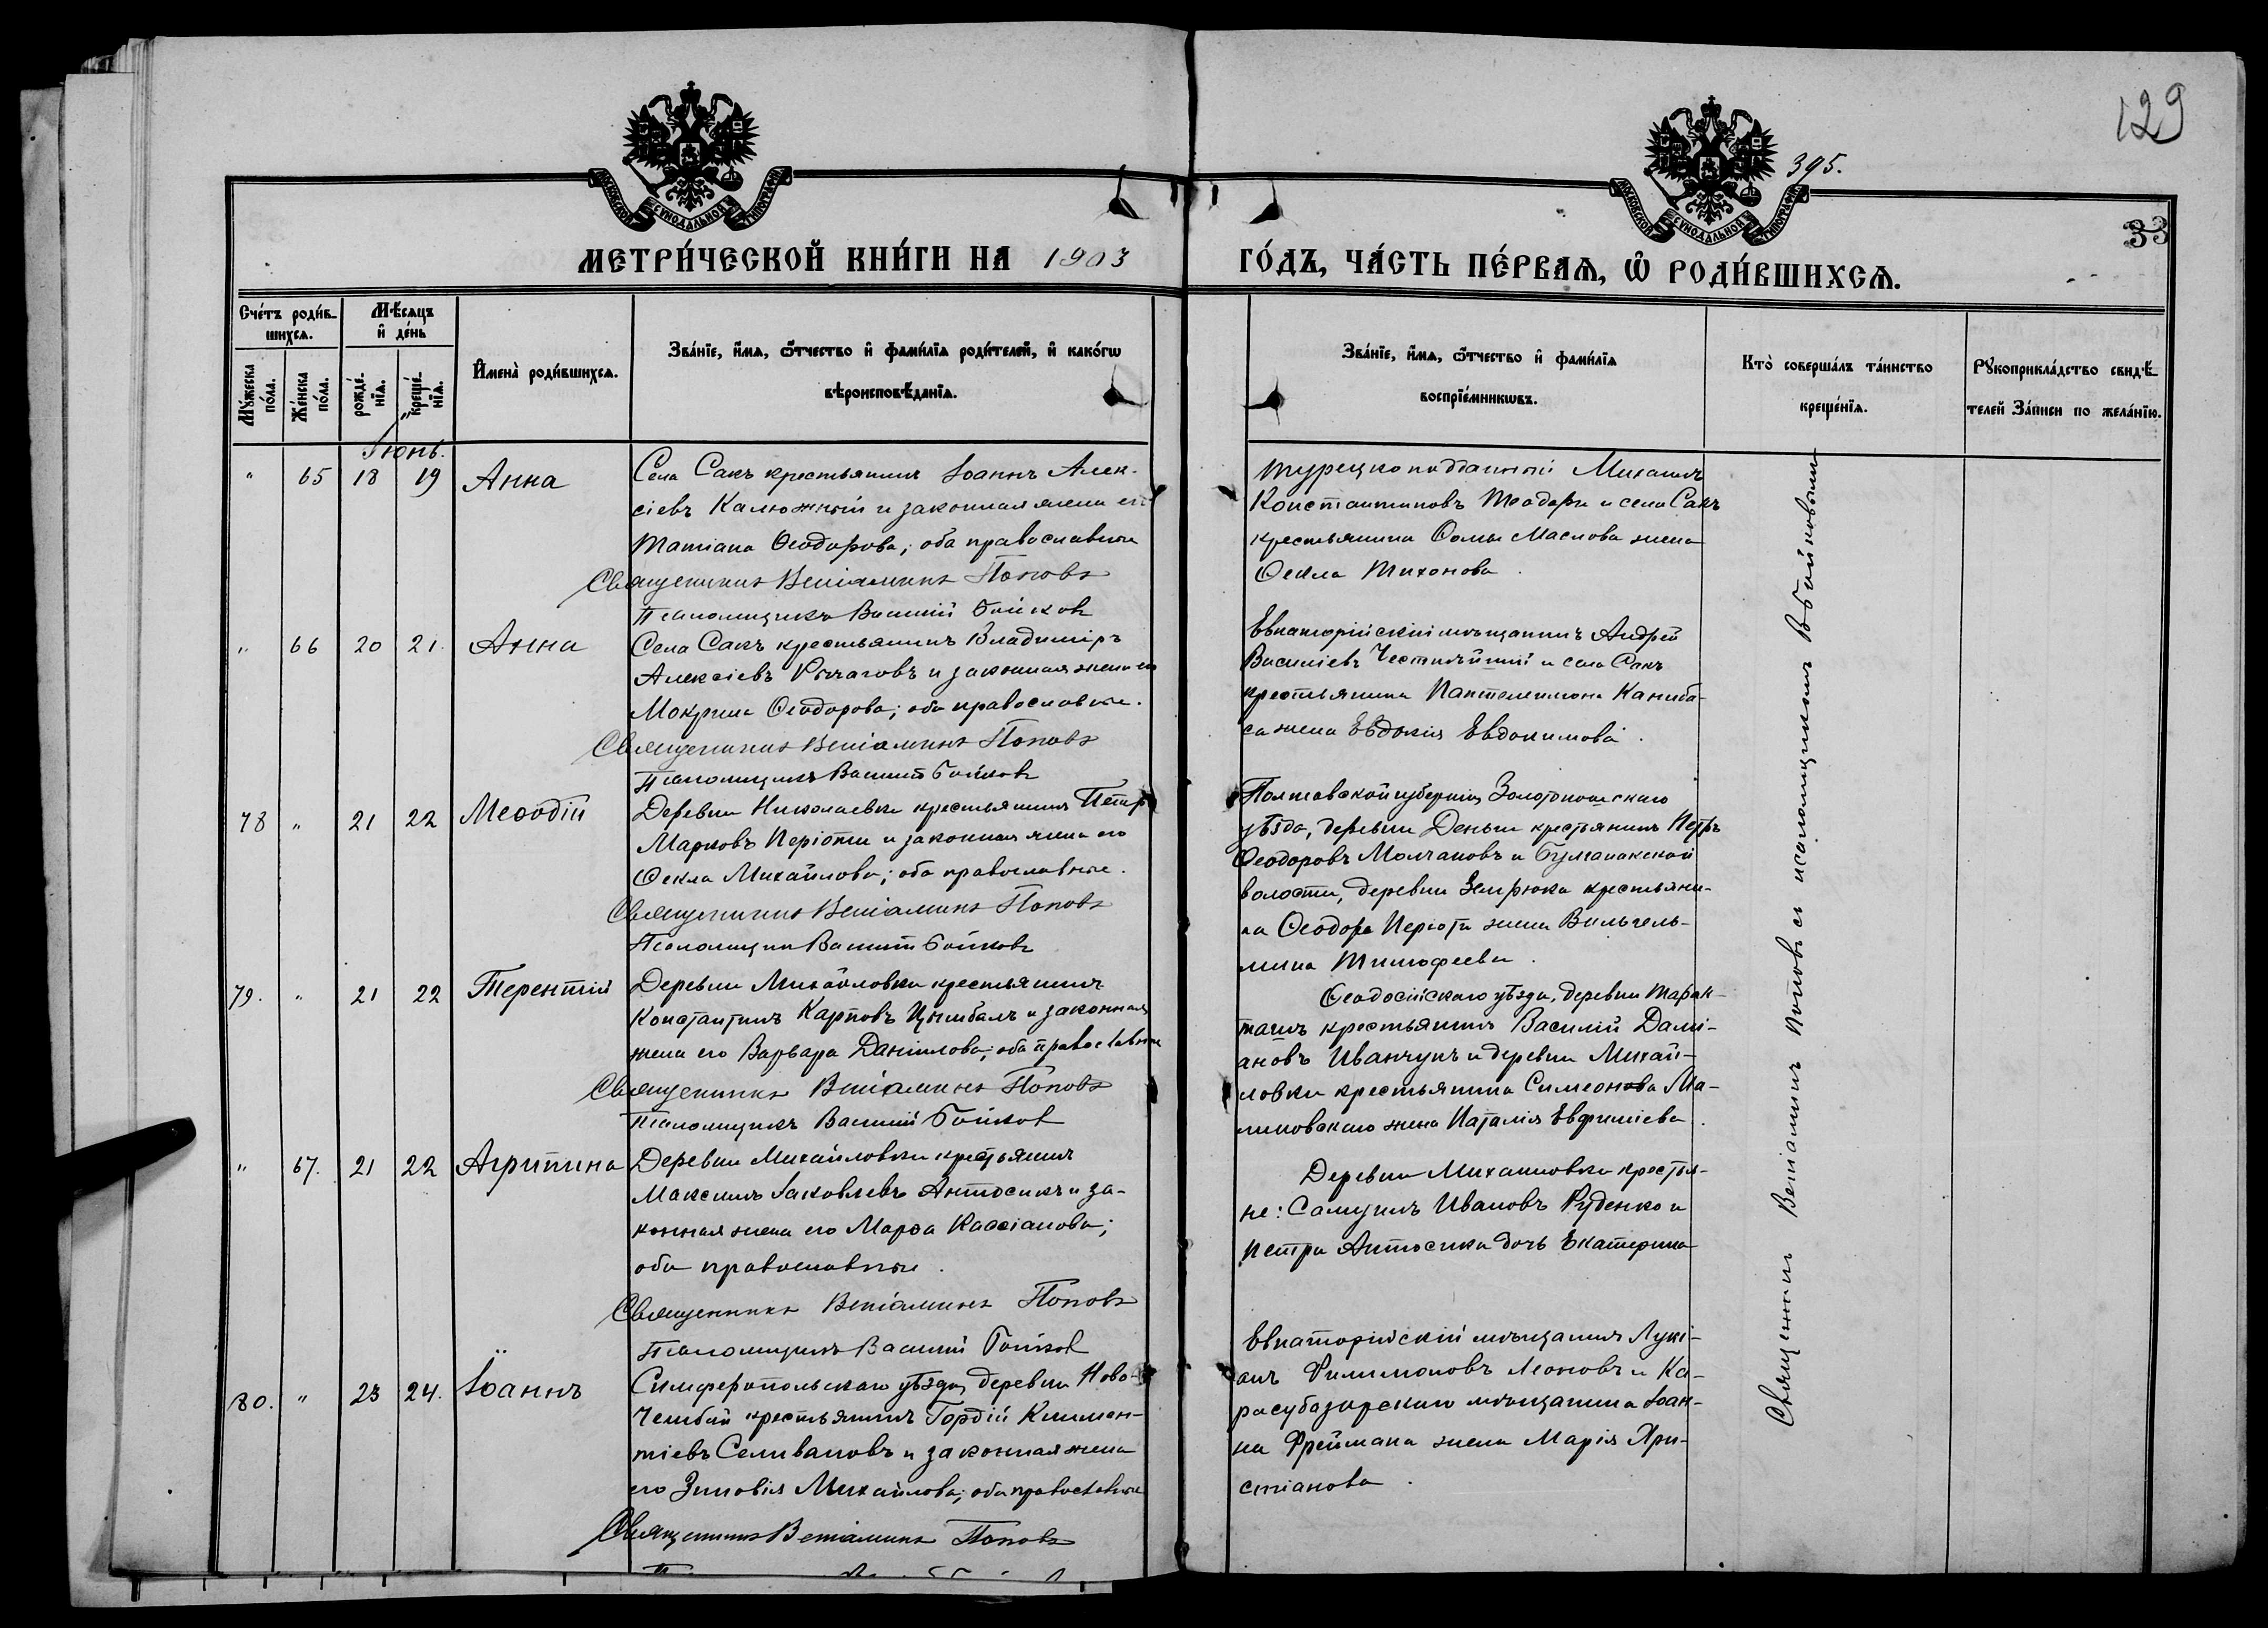 129
395.
33
МОСКОВСКОЙ СѴНОДАЛЬНОЙ ТИПОГРАФІИ
МОСКОВСКОЙ СѴНОДАЛЬНОЙ ТИПОГРАФІИ
МЕТРИ́ЧЕСКОЙ КНИ́ГИ НА 1903 ГО́ДЪ, ЧА́СТЬ ПЕ́РВАѦ, Ѡ҆ РОДИ́ВШИХСѦ.
Сче́тъ роди́в-
шихсѧ.
Мѣ́сяцъ
и҆ де́нь
Му́жеска по́ла.
Же́нска по́ла.
рожде́-нїѧ.
креще́-нїѧ.
И҆мена̀ роди́вшихсѧ.
Зва́нїе, и҆́мѧ, ѻ҆́тчество и҆ фами́лїѧ роди́телей, и҆ како́гѡ
вѣроисповѣ́данїѧ.
Зва́нїе, и҆́мѧ, ѻ҆́тчество и҆ фами́лїѧ
воспрїе́мникѡвъ.
Кто̀ соверша́лъ та́инство
креще́нїѧ.
Рꙋкоприкла́дство свидѣ́-
телей За́писи по жела́нїю.
Іюнь.
" 65 18 19 Анна
Села Сакъ крестьянинъ Іоаннъ Алек-
сіевъ Калюжный и законная жена его
Татіана Ѳеодорова; оба православные
Священникъ Веніаминъ Поповъ
Псаломщикъ Василій Бойковъ
турецкоподданный Михаилъ
Константиновъ Теодори и села Сакъ
крестьянина Ѳомы Маслова жена
Ѳекла Тихонова.
" 66 20 21. Анна
Села Сакъ крестьянинъ Владиміръ
Алексіевъ Рычаговъ и законная жена его
Мокрина Ѳеодорова; оба православные.
Священникъ Веніаминъ Поповъ
Псаломщикъ Василій Бойковъ
Евпаторійскій мѣщанинъ Андрей
Василіевъ и села Сакъ
крестьянина Пантелеимона Каниба-
са жена Евдокія Евдокимова.
78 " 21 22 Меѳодій
Деревни Николаевки крестьянинъ Петръ
Марковъ Періоти и законная жена его
Ѳекла Михайлова; оба православные.
Священникъ Веніаминъ Поповъ
Псаломщикъ Василій Бойковъ
Полтавской губерніи Золотоношскаго
уѣзда, деревни Деньги крестьянинъ Петръ
Ѳеодоровъ Молчановъ и Булганакской
волости, деревни крестьяни-
на Ѳеодора Періоти жена Вильгель-
мина Тимофеева.
79. " 21 22 Терентій
Деревни Михайловки крестьянинъ
Константинъ Карповъ Цымбалъ и законная
жена его Варвара Даніилова; оба православные
Священникъ Веніаминъ Поповъ
Псаломщикъ Василій Бойковъ
Ѳеодосійскаго уѣзда, деревни ТаRак-
ташъ крестьянинъ Василій Дамі-
ановъ Иванчукъ и деревни Михай-
ловки крестьянина Симеонова Ма-
линовскаго жена Наталія Евфиміева.
" 67. 21 22 Агрипина
Деревни Михайловки крестьянинъ
Максимъ Іаковлевъ Антосикъ и за-
конная жена его Марѳа Кассіанова;
оба православные.
Священникъ Веніаминъ Поповъ
Псаломщикъ Василій Бойковъ
Деревни Михайловки крестья-
не: Самуилъ Ивановъ Руденко и
Петра Антосика дочь Екатерина
80. " 23 24. Іоаннъ
Симферопольскаго уѣзда, деревни Ново-
Челибай крестьянинъ Гордій Климен-
тіевъ Селивановъ и законная жена
его Зиновія Михайлова; оба православные
Священникъ Веніаминъ Поповъ
Евпаторійскій мѣщанинъ Лукі-
анъ Филимоновъ Леоновъ и Ка-
расубазарскаго мѣщанина Іоан-
на Фреймана жена Марія Хри-
стіанова.
Священникъ Веніаминъ Поповъ съ псаломщикомъ В. Бойковымъ